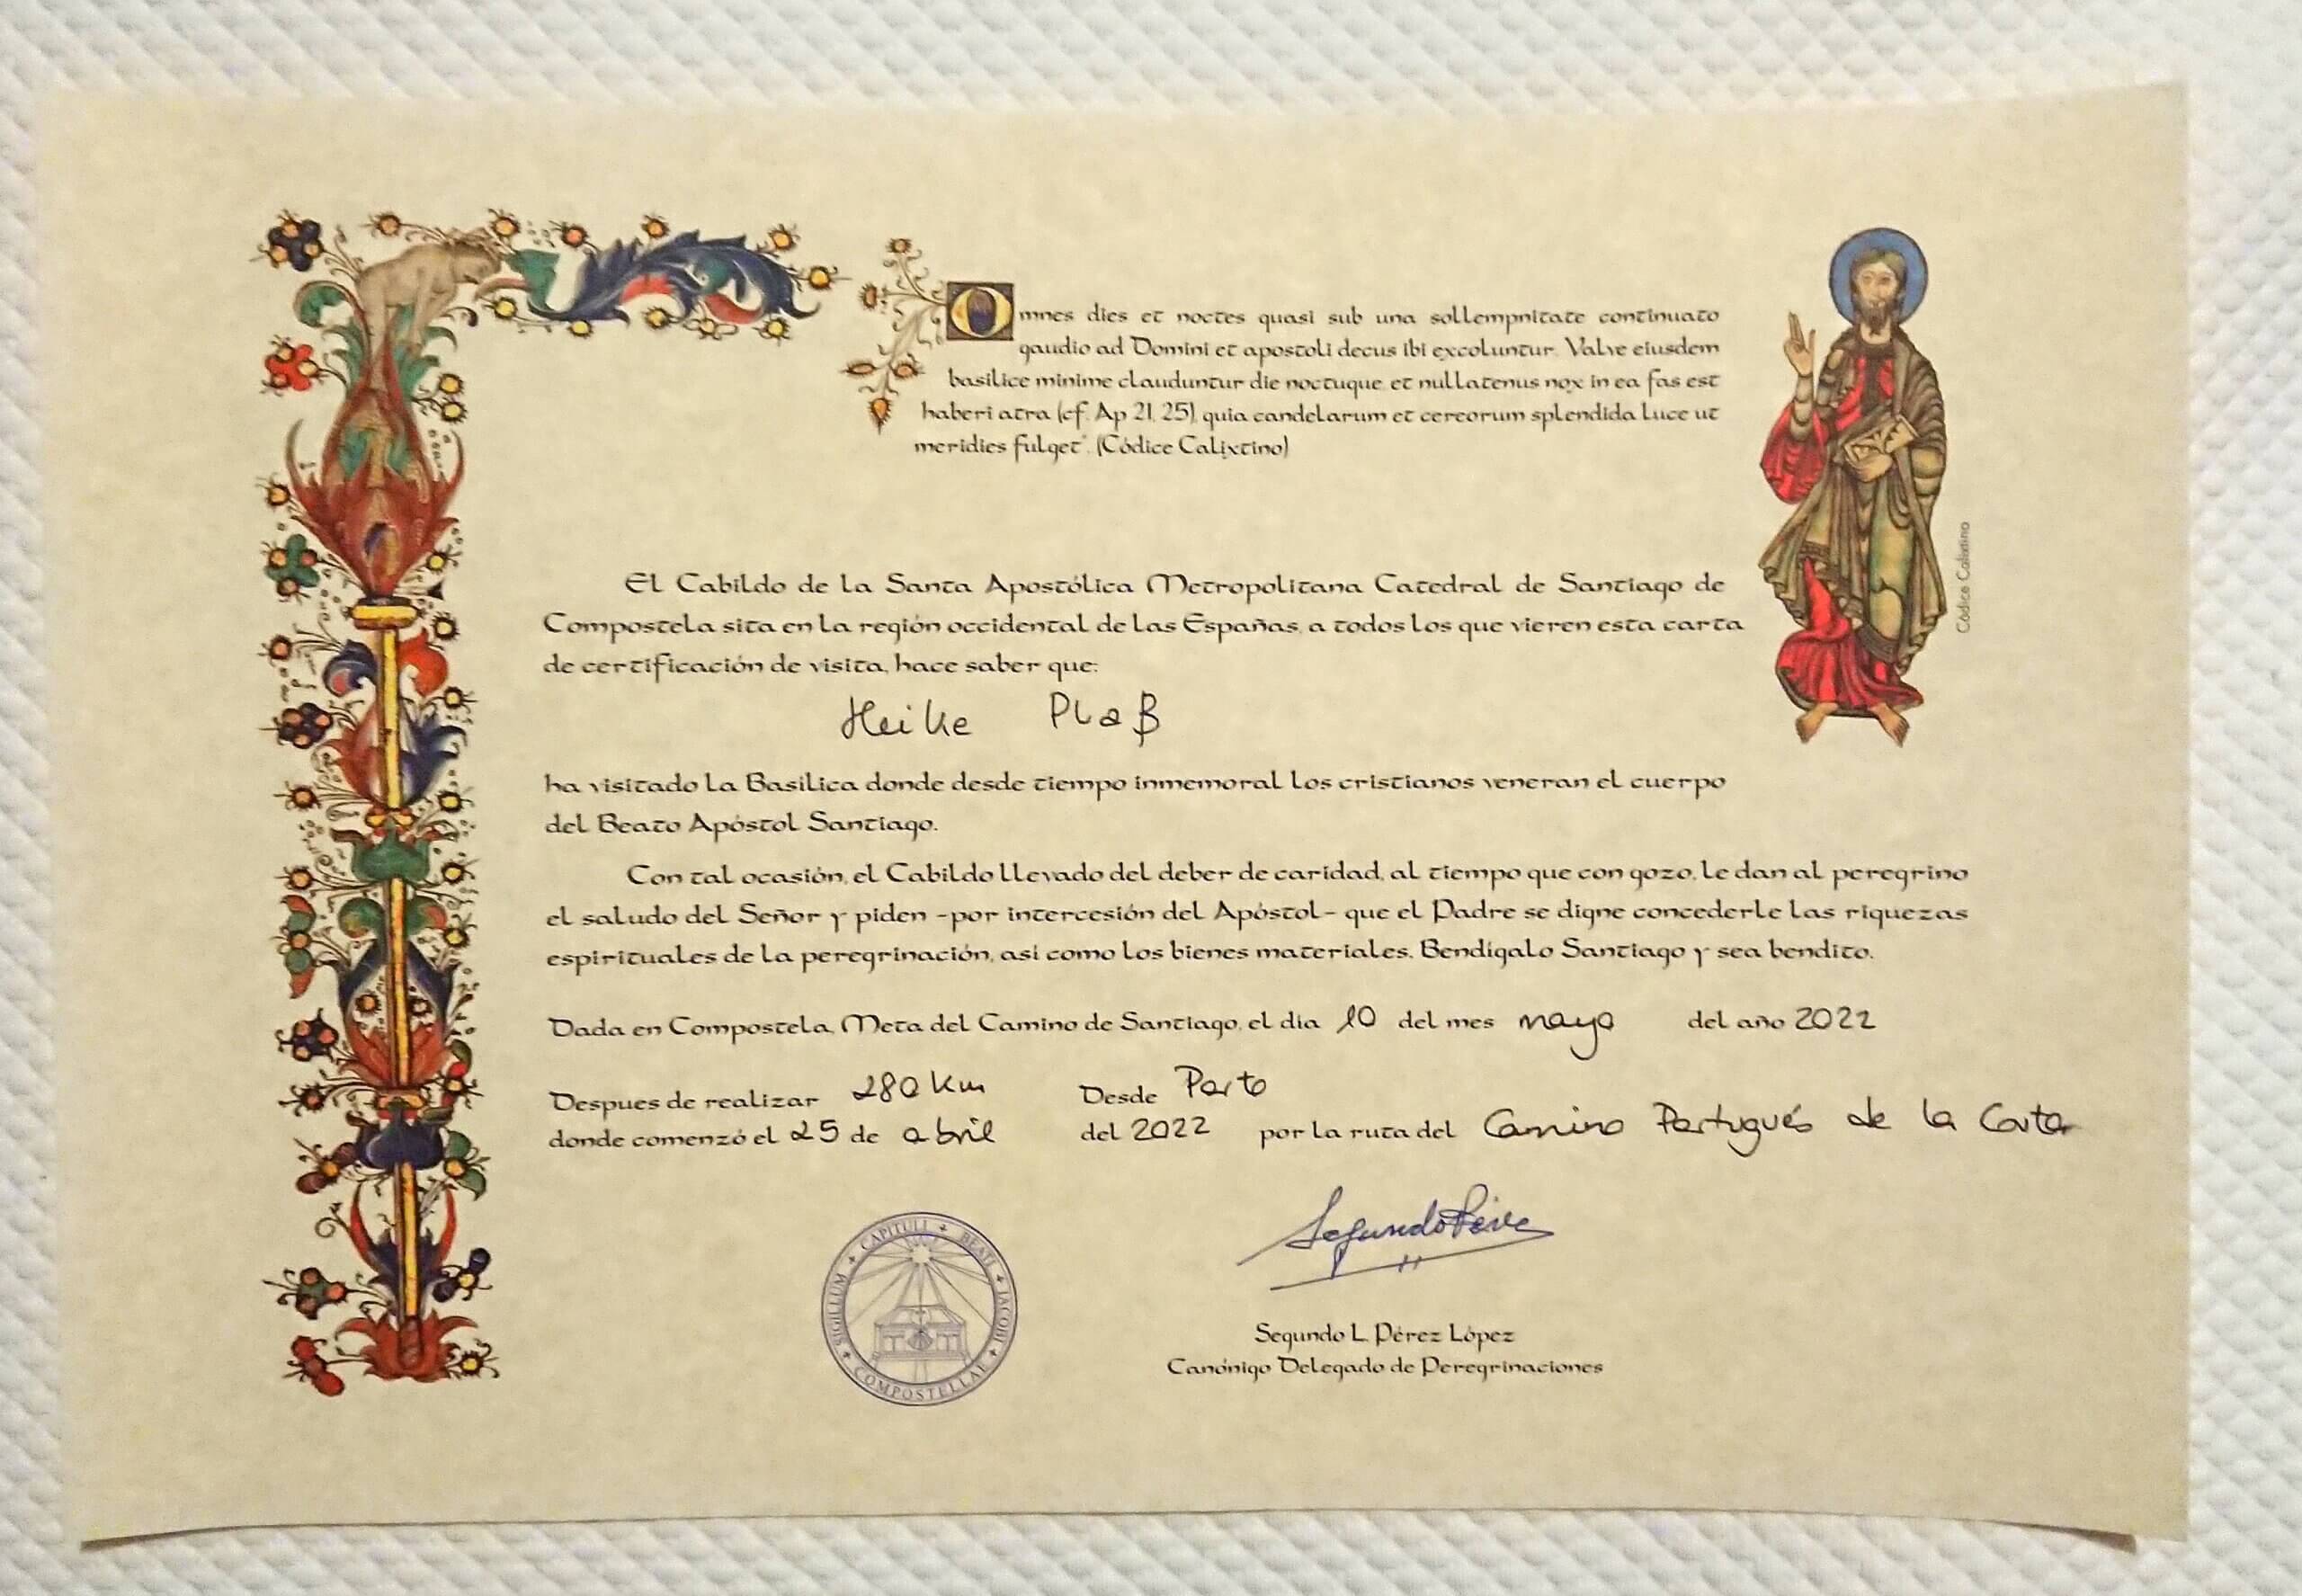 Omnes dies et noctes quasi sub una sollempnitate continuato
gaudio ad Domini et apostoli decus ibi excoluntur. Valve eiusdem
basilice minime clauduntur die noctuque, et nullatenus nox in ea fas est
haberi atra (cf. Ap 21, 25), quia candelarum et cereorum splendida luce ut
meridies fulget". (Códice Calixtino)
Códice Calixtino
El Cabildo de la Santa Apostólica Metropolitana Catedral de Santiago de
Compostela sita en la región occidental de las Españas, a todos los que vieren esta carta
de certificación de visita, hace saber que:
Heike Plaß
ha visitado la Basílica donde desde tiempo inmemoral los cristianos veneran el cuerpo
del Beato Apóstol Santiago.
Con tal ocasión, el Cabildo llevado del deber de caridad, al tiempo que con gozo, le dan al peregrino
el saludo del Señor y piden -por intercesión del Apóstol- que el Padre se digne concederle las riquezas
espirituales de la peregrinación, así como los bienes materiales. Bendígalo Santiago y sea bendito.
Dada en Compostela, Meta del Camino de Santiago, el día 10 del mes mayo del año 2022
Despues de realizar 280 km Desde Porto
donde comenzó el 25 de abril del 2022 por la ruta del Camino Portugués de la Costa
SIGILLUM + CAPITULI + BEATI + IACOBI + COMPOSTELLAE +
Segundo Pérez
Segundo L. Pérez López
Canónigo Delegado de Peregrinaciones